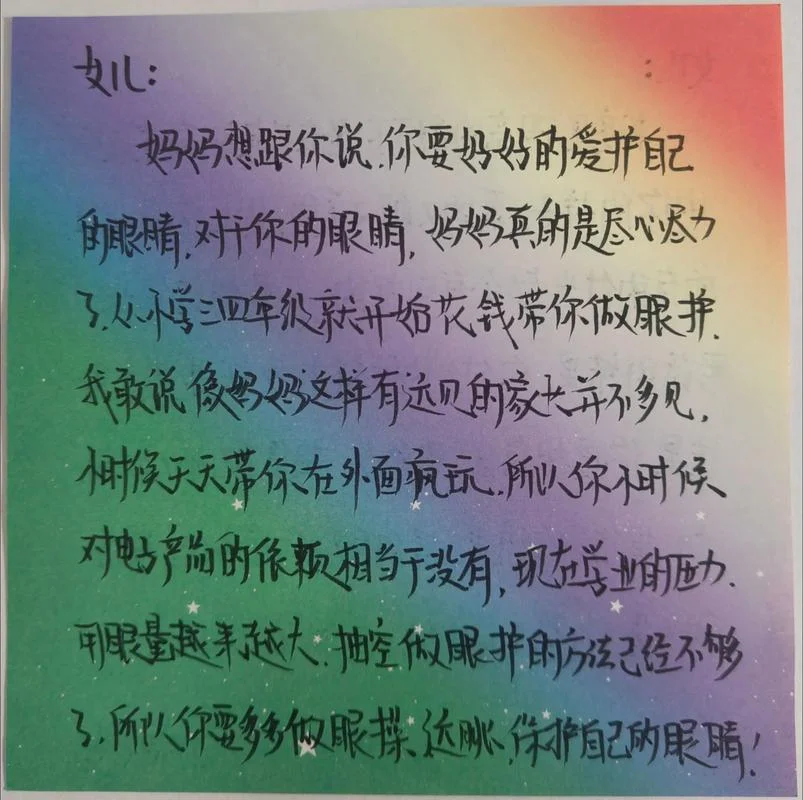 女儿：
妈妈想跟你说，你要好好的爱护自己
的眼睛，对于你的眼睛，妈妈真的是尽心尽力
了，从小学三四年级就开始花钱带你做眼护，
我敢说像妈妈这样有远见的家长并不多见，
小时候天天带你在外面疯玩，所以你小时候
对电子产品的依赖相当于没有，现在学业的压力，
用眼量越来越大，抽空做眼护的方法已经不够
了，所以你要多多做眼操，远眺，保护自己的眼睛！